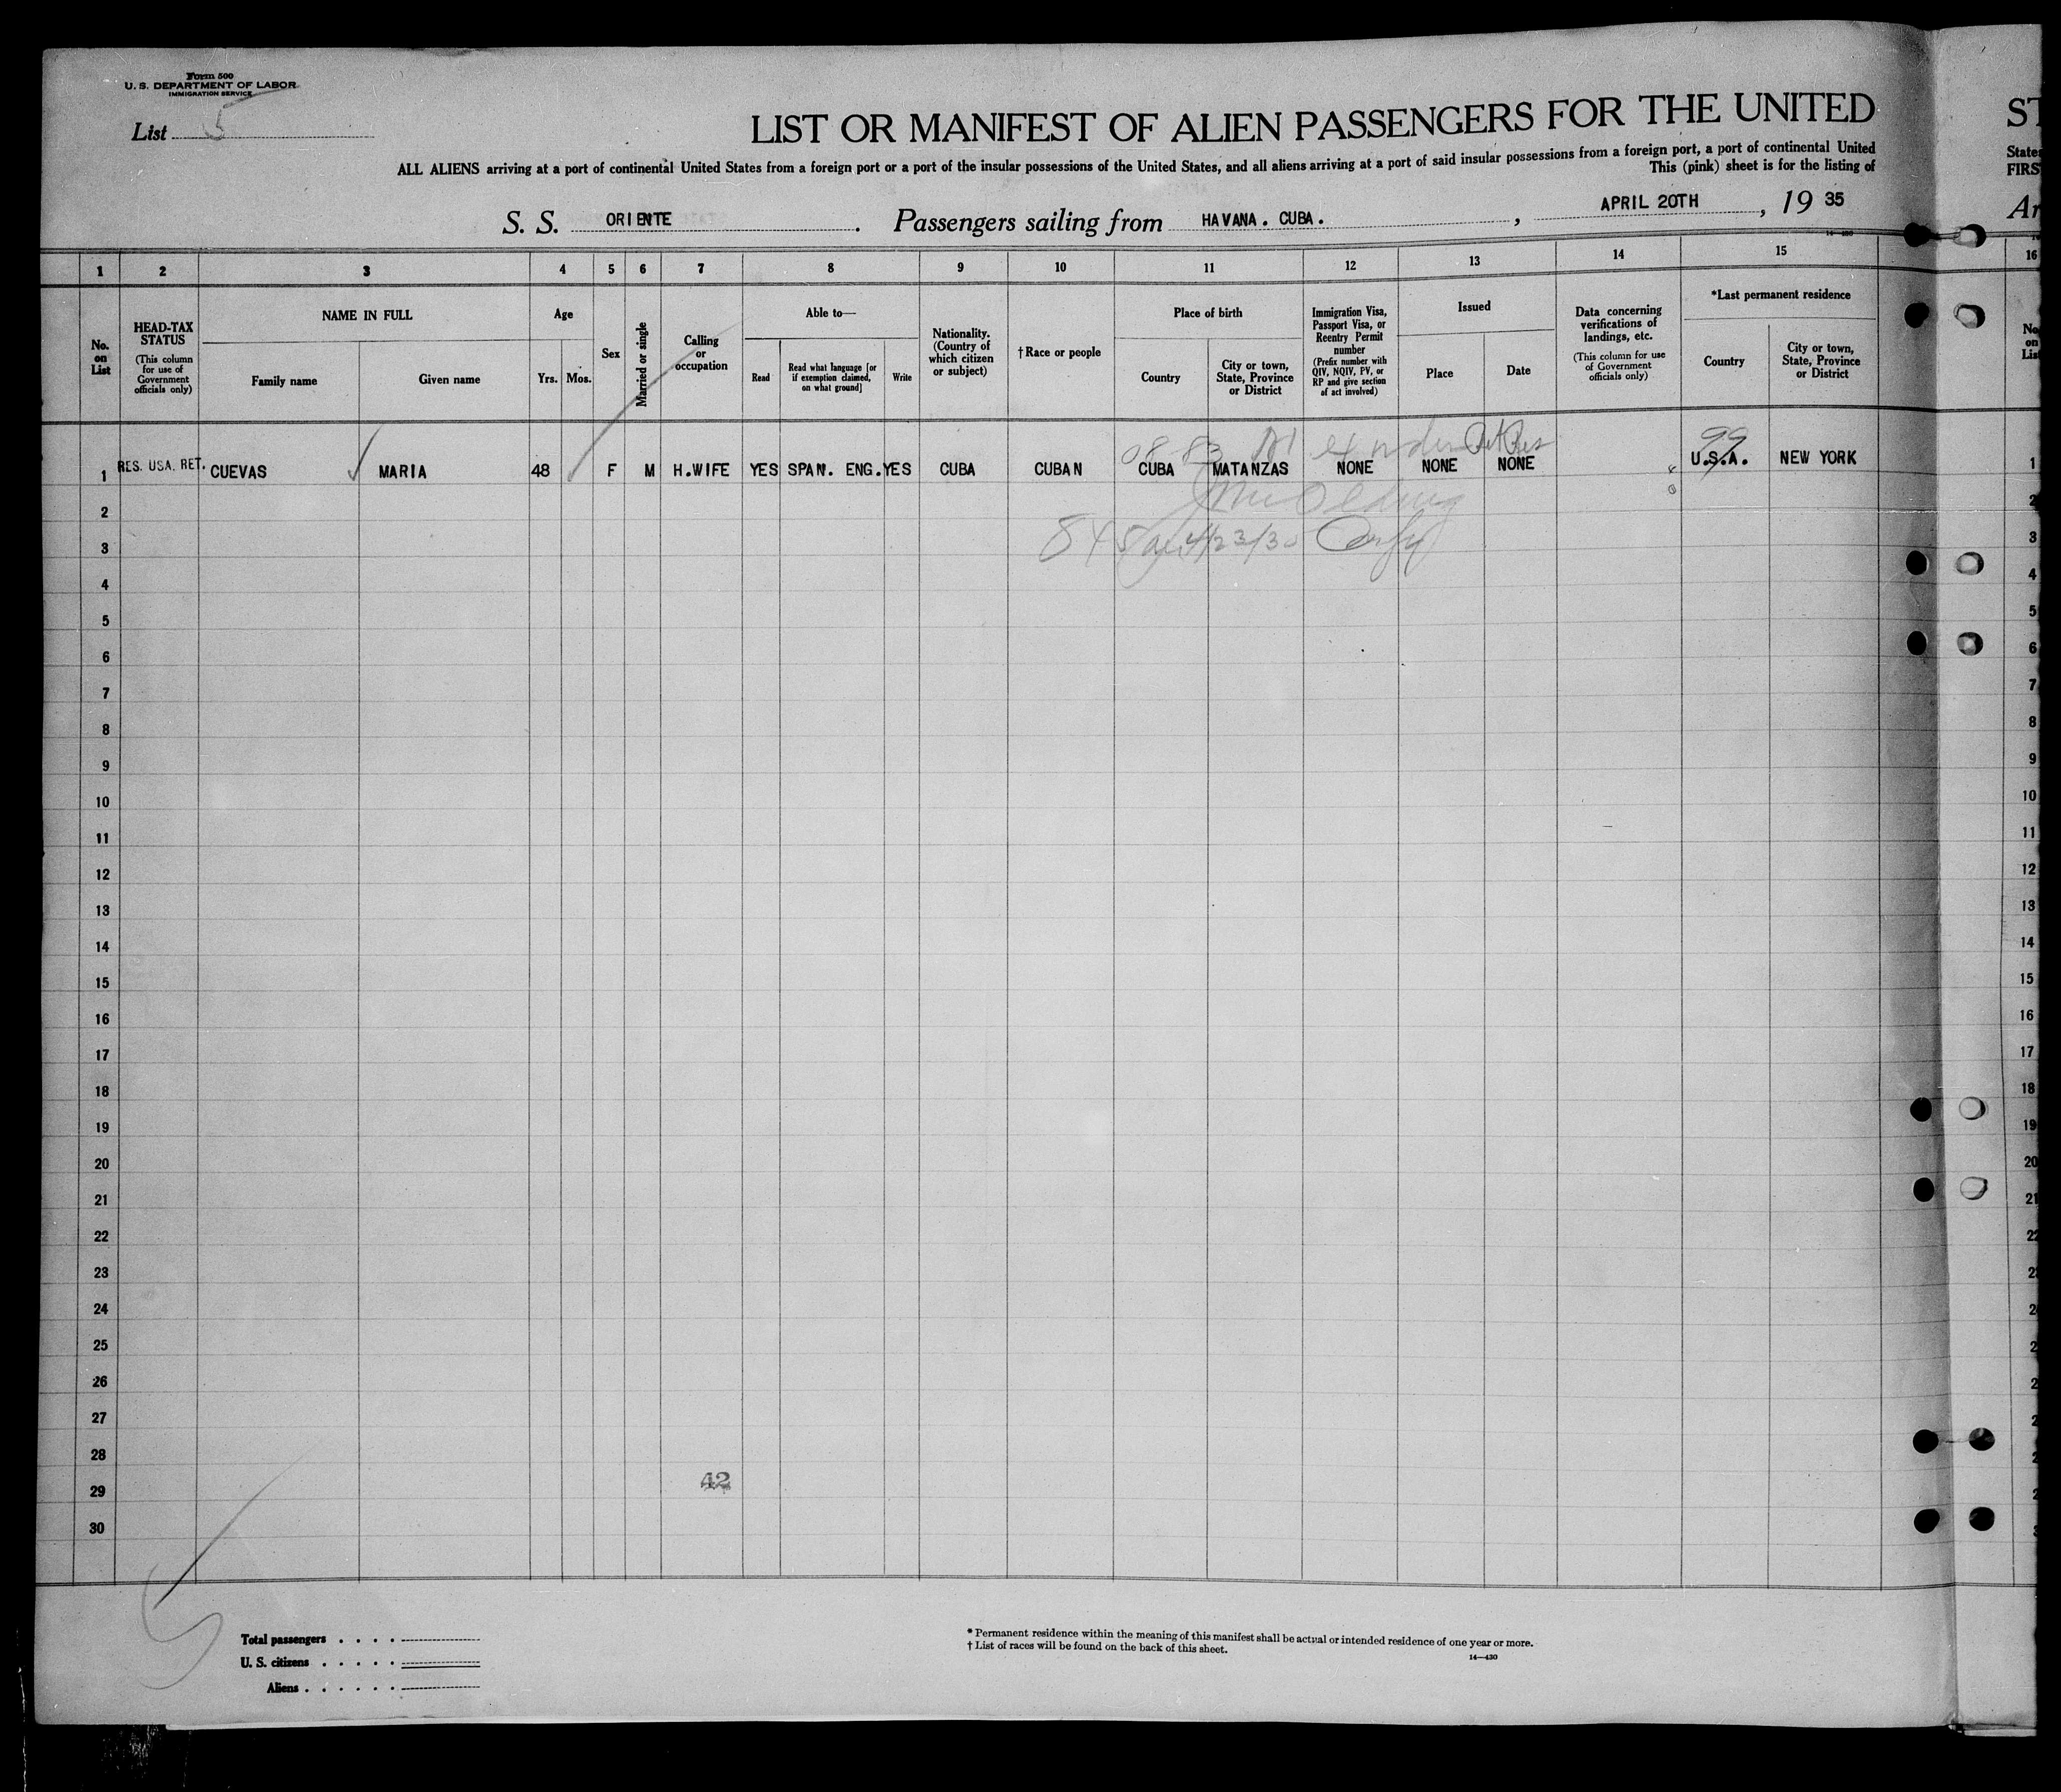 Form 500
U. S. DEPARTMENT OF LABOR
IMMIGRATION SERVICE
List 5
LIST OR MANIFEST OF ALIEN PASSENGERS FOR THE UNITED
ST
ALL ALIENS arriving at a port of continental United States from a foreign port or a port of the insular possessions of the United States, and all aliens arriving at a port of said insular possessions from a foreign port, a port of continental United
States
This (pink) sheet is for the listing of
FIRS
S. S. ORIENTE . Passengers sailing from HAVANA. CUBA. , APRIL 20TH , 19 35
Ar
1 2 3 4 5 6 7 8 9 10 11 12 13 14 15 16
No. on List
HEAD-TAX STATUS (This column for use of Government officials only)
NAME IN FULL
Family name Given name
Age
Yrs. Mos.
Sex
Married or single
Calling or occupation
Able to—
Read
Read what language [or if exemption claimed, on what ground]
Write
Nationality. (Country of which citizen or subject)
†Race or people
Place of birth
Country
City or town, State, Province or District
Immigration Visa, Passport Visa, or Reentry Permit number (Prefix number with QIV, NQIV, PV, or RP and give section of act involved)
Issued
Place Date
Data concerning verifications of landings, etc. (This column for use of Government officials only)
*Last permanent residence
Country
City or town, State, Province or District
No. on List
08-83
99
1 RES. USA. RET. CUEVAS MARIA 48 F M H.WIFE YES SPAN. ENG. YES CUBA CUBAN CUBA MATANZAS NONE NONE NONE U.S.A. NEW YORK 1
2 2
3 3
4 4
5 5
6 6
7 7
8 8
9 9
10 10
11 11
12 12
13 13
14 14
15 15
16 16
17 17
18 18
19 19
20 20
21 21
22 22
23 2
24 2
25 2
26 2
27 2
28 2
42
29 2
30 3
5
Total passengers
U. S. citizens
Aliens
* Permanent residence within the meaning of this manifest shall be actual or intended residence of one year or more.
† List of races will be found on the back of this sheet.
14—430